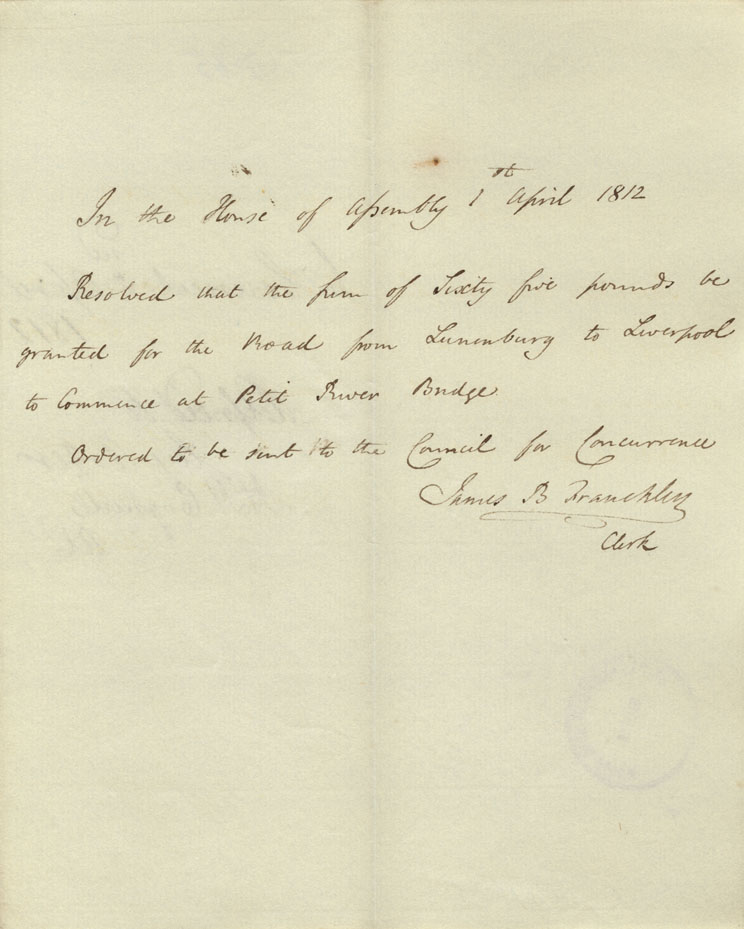 In the House of Assembly 1st April 1812
Resolved that the sum of Sixty five pounds be
granted for the Road from Lunenburg to Liverpool
to Commence at Petit River Bridge
Ordered to be sent to the Council for Concurrence
James B Franchley
Clerk